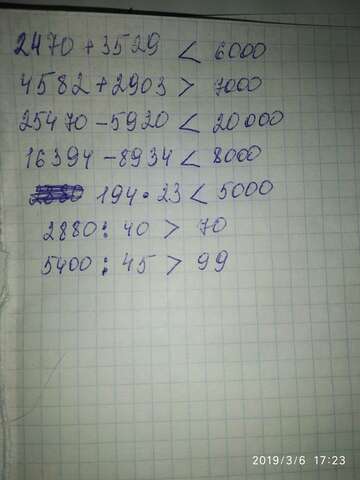 2470 + 3529 < 6000
4582 + 2903 > 7000
25470 - 5920 < 20000
16394 - 8934 < 8000
194 · 23 < 5000
2880 : 40 > 70
5400 : 45 > 99
2019/3/6 17:23